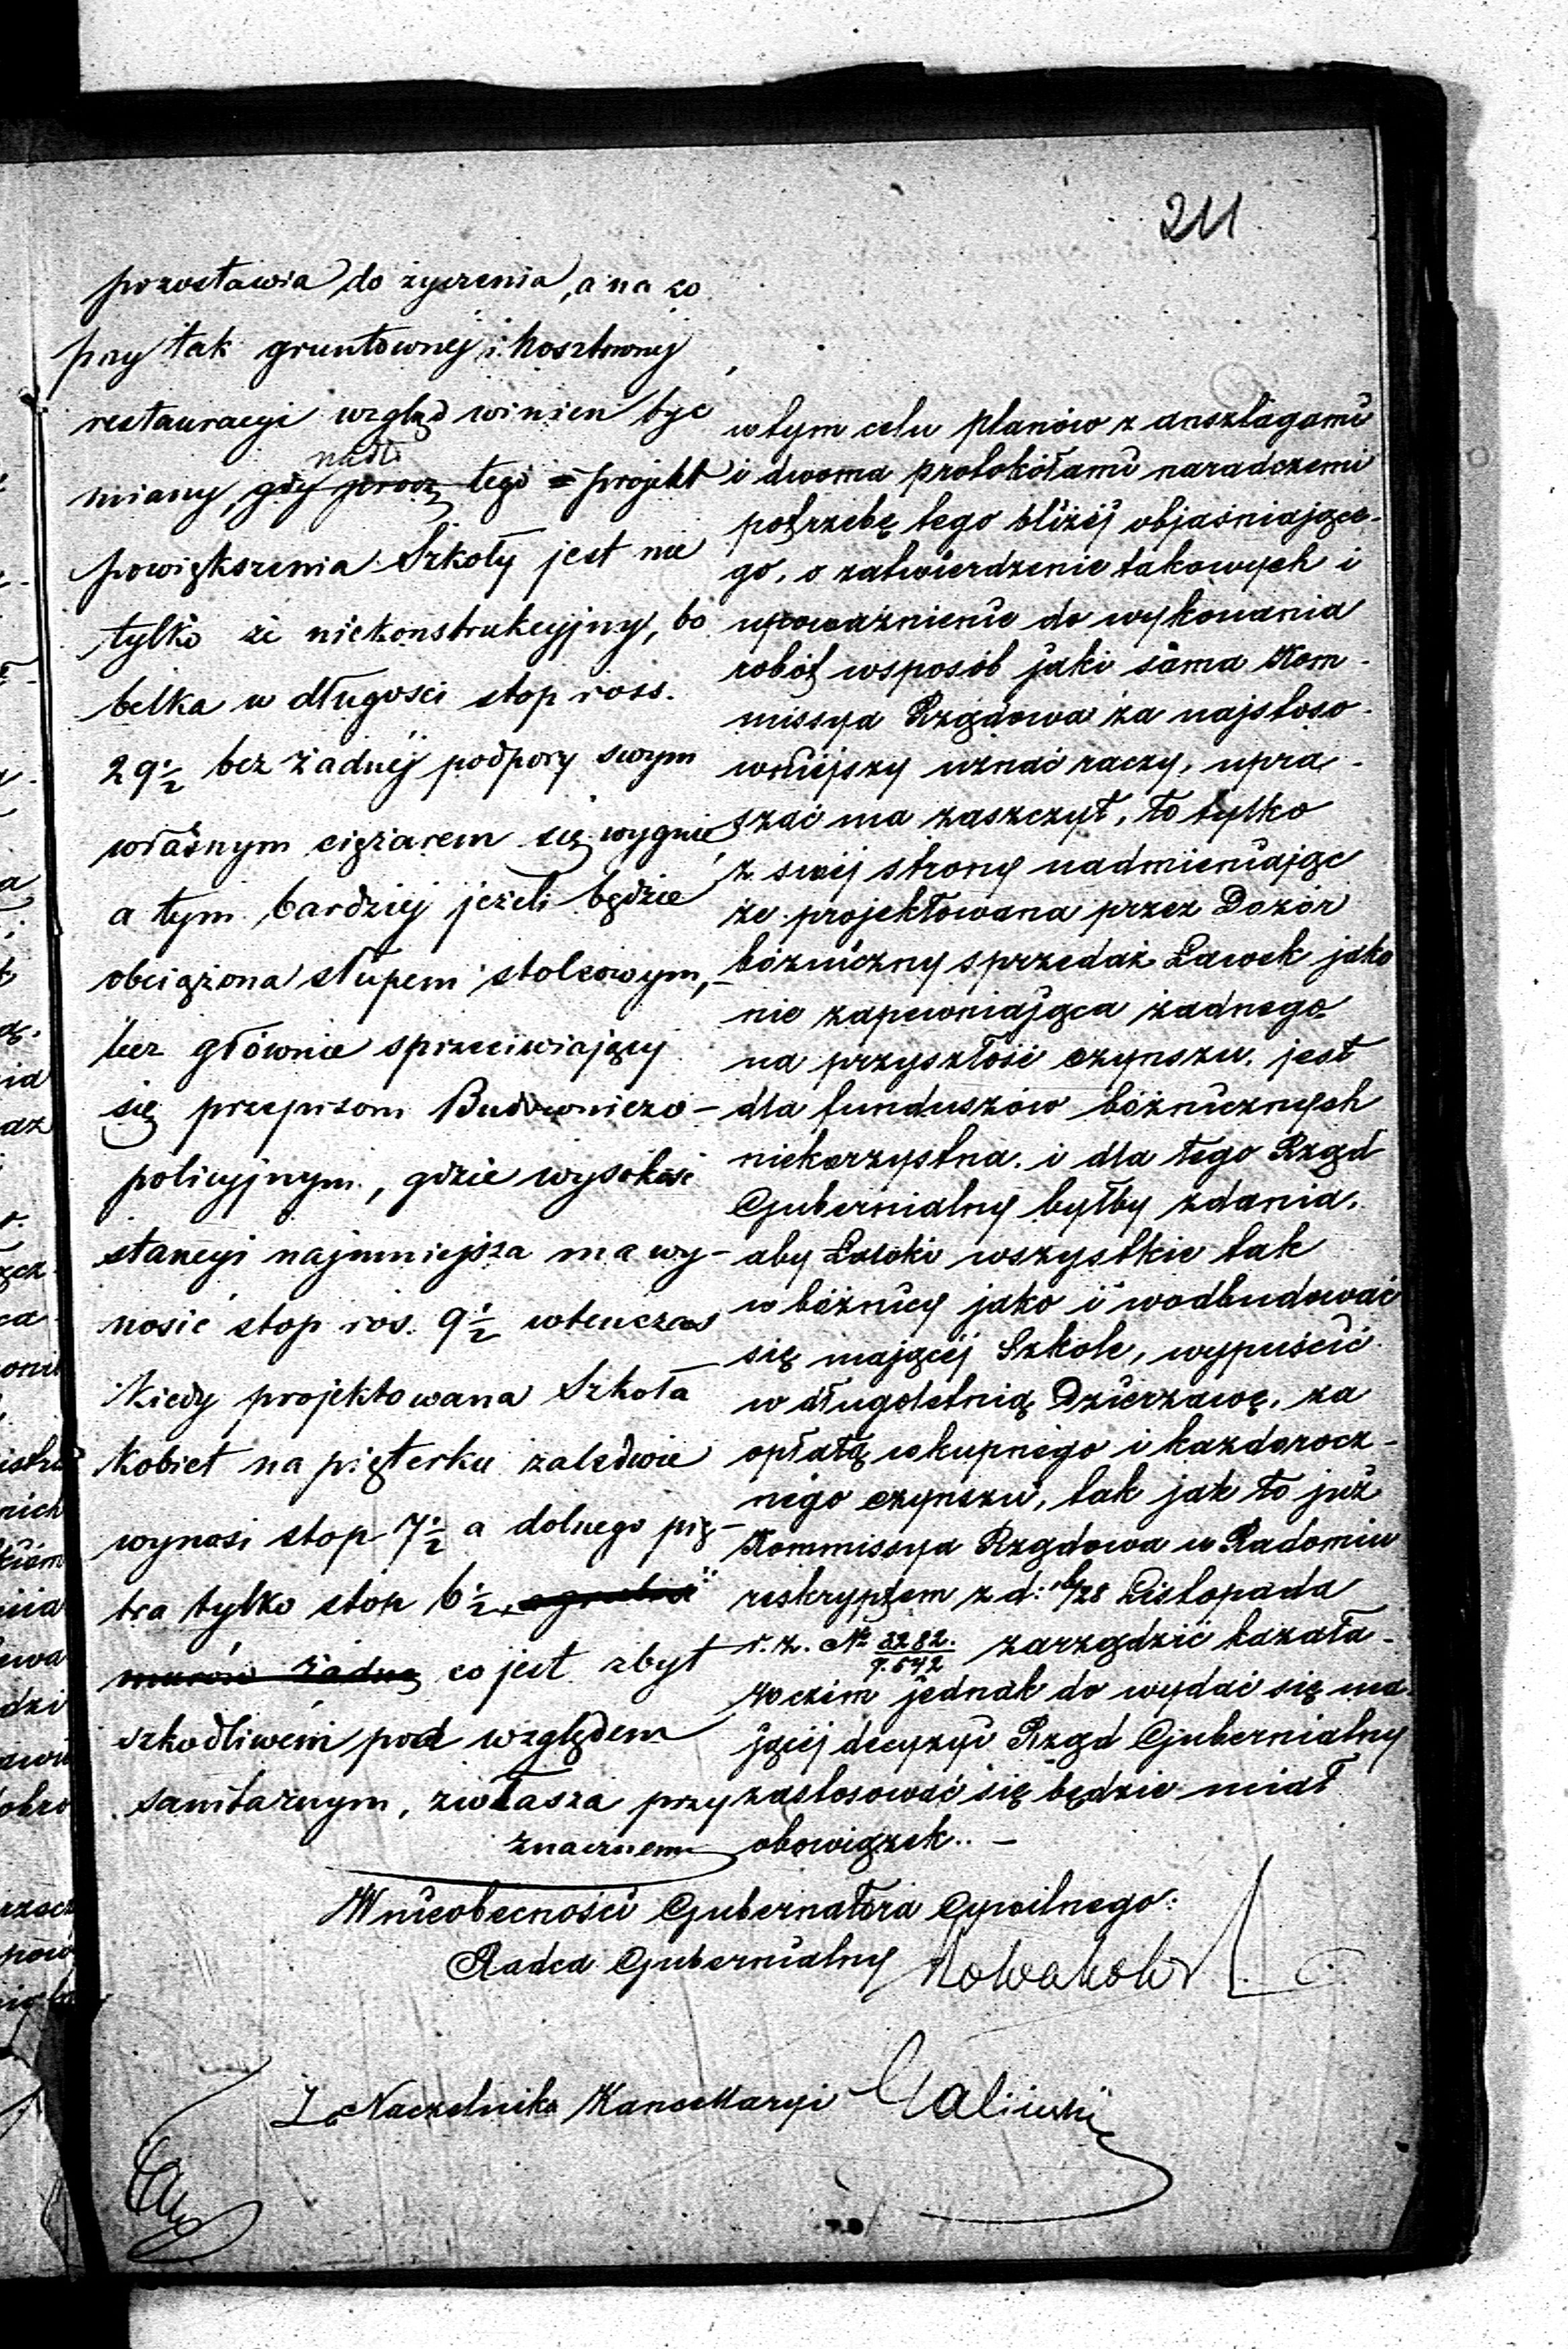 211
pozostawia do życzenia, a na co
przy tak gruntownej i kosztownej
restauracyi wzgląd winien być
nadto
miany, gdy prócz tego = projekt
powiększenia Szkoły jest nie
tylko że niekonstrukcyjny, bo
belka w długosci stop ross.
29 1/2 bez żadnéj podpory swym
własnym ciężarem się wygnie,
a tym bardziej jeżeli będzie
obciążona słupem stolcowym,
lecz głównie sprzeciwiający
się przepisom Budowniczo-
policyjnym, gdzie wysokość
stancyi najmniejsza ma wy-
nosić stop ros. 9 1/2 wtenczas
kiedy projektowana Szkoła
Kobiet na pięterku zaledwie
wynosi stop 7 1/2 a dolnego pię-
tra tylko stop 6 1/2,
murów żadną co jest zbyt
szkodliwém pod względem
sanitarnym, zwłasza przy
znacznem
w tym celu planów z anszlagami
i dwoma protokółami naradczemi
potrzebę tego bliżéj objaśniające-
go, o zatwierdzenie takowych i
upoważnienie do wykonania
robót w sposób jaki sama Kom-
missya Rządowa za najstoso-
wniejszy uznać raczy, upra-
szać ma zaszczyt, to tylko
z swéj strony nadmieniając
że projektowana przez Dozór
bóżniczny sprzedaż Ławek jako
nie zapewniająca żadnego
na przyszłość czynszu, jest
dla funduszów bóżnicznych
niekorzystna, i dla tego Rząd
Gubernialny byłby zdania,
aby Ławki wszystkie tak
w bóżnicy jako i w odbudować
się mającéj Szkole, wypuścić
w długoletnią Dzierzawę, za
opłatą wkupnégo i każdorocz-
négo czynszu, tak jak to już
Kommissya Rządowa w Radomiu
reskryptem z d: 16/28 Listopada
r. z. № 3282/9.542 zarządzić kazała-
Wo czém jednak do wydać się ma-
jącéj decyzyi Rząd Gubernialny
zastosować się będzie miał
obowiązek.. –
W nieobecności Gubernatora Cywilnego:
Radca Gubernialny Nowakowski
Za Naczelnika Kancellaryi